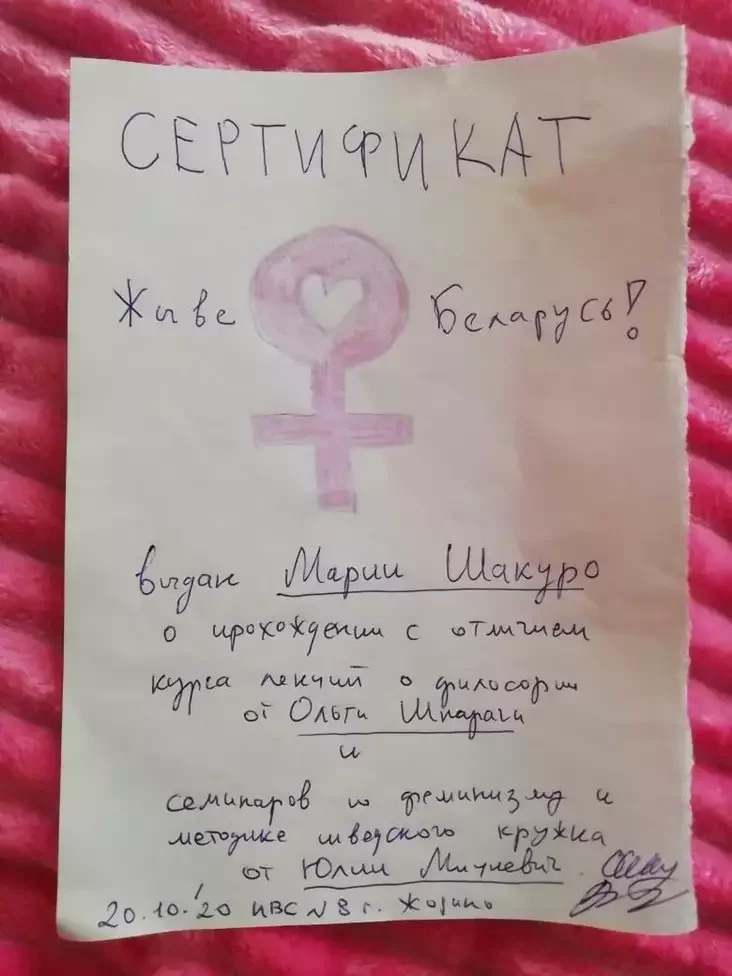 СЕРТИФИКАТ
Жыве Беларусь!
выдан Марии Шакуро
о прохождении с отличием
курса лекций о философии
от Ольги Шпараги
и
семинаров по феминизму и
методике шведского кружка
от Юлии Мицкевич.
20.10.'20 ИВС №8 г. Жодино